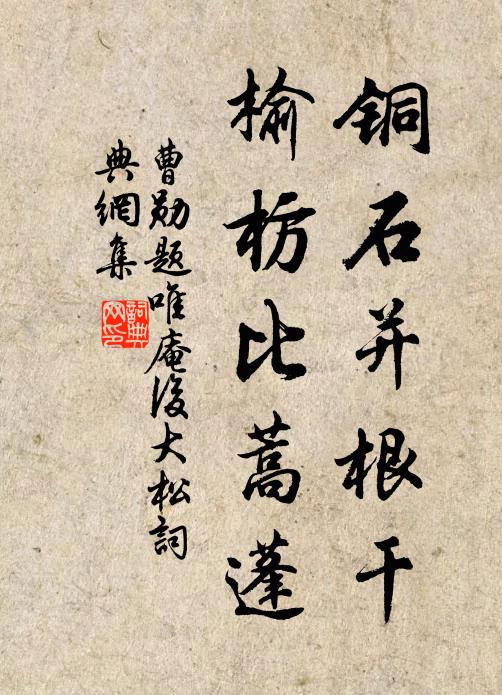 铜石并根干
榆枋比蒿蓬
曹勋题唯庵後大松詞
典網集
詞典网印